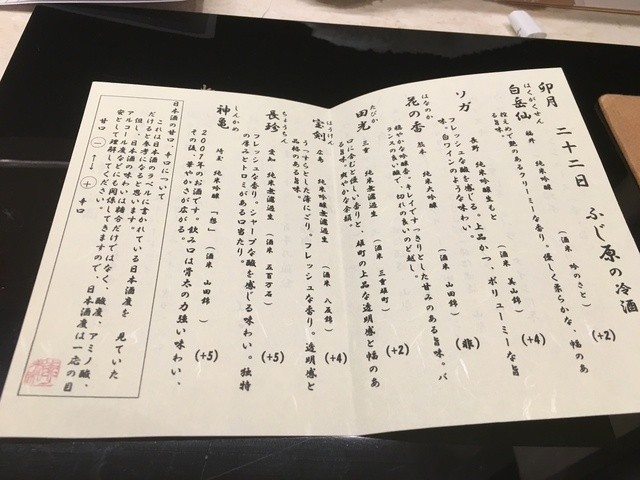 卯月 二十二日 ふじ原の冷酒
はくがくせん
白岳仙 福井 純米吟醸 (酒米 吟のさと) (+2)
控えめで艶のあるクリーミーな香り。優しく柔らかな、幅のあ
る旨味。
ソガ 長野 純米吟醸生もと (酒米 美山錦) (+4)
フレッシュな酸を感じる味わい。上品かつ、ボリューミーな旨
味。白ワインのような味わい。
はなのか
花の香 熊本 純米大吟醸 (酒米 山田錦) (非)
穏やかな吟醸香。キレイですっきりとした甘みのある旨味。バ
ランスの良い酸で、切れの良いのど越し。
たびか
田光 三重 純米吟醸無濾過生 (酒米 三重雄町) (+2)
口に含むと優しい香りと、雄町の上品な透明感と幅のあ
る旨味。爽やかな余韻。
ほうけん
宝剣 広島 純米吟醸無濾過生 (酒米 八反錦) (+4)
うっすらとした薄にごり。フレッシュな香り。透明感と
品のある旨味。
ちょうちん
長珍 愛知 純米無濾過生 (酒米 五百万石) (+5)
フレッシュな香り。シャープな酸を感じる味わい。独特
の厚みとトロミがある口当たり。
しんかめ
神亀 埼玉 純米吟醸 (酒米 山田錦) (+5)
2007年のお酒です。飲み口は骨太の力強い味わい、
その後、華やかさが広がる。
日本酒の甘口、辛口について
これは日本酒のラベルに書かれている日本酒度を 見ていた
だけると参考になると思います。
但し、日本酒の味わいは糖分だけではなく、酸度、アミノ酸、
アルコール度などにも関係してきますので、日本酒度は一応の目
安として理解してください。
甘口 (−) ←→ (+) 辛口